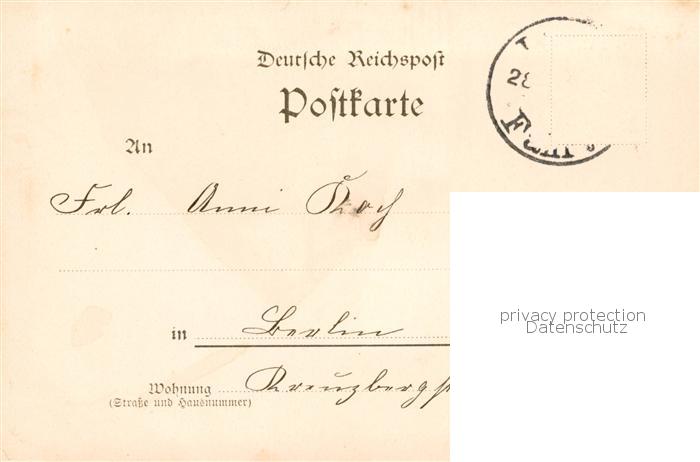 Deutsche Reichspost
Postkarte
28
An
Frl. Anni Koch
privacy protection
Datenschutz
in Berlin
Wohnung Kreuzbergst
(Straße und Hausnummer)